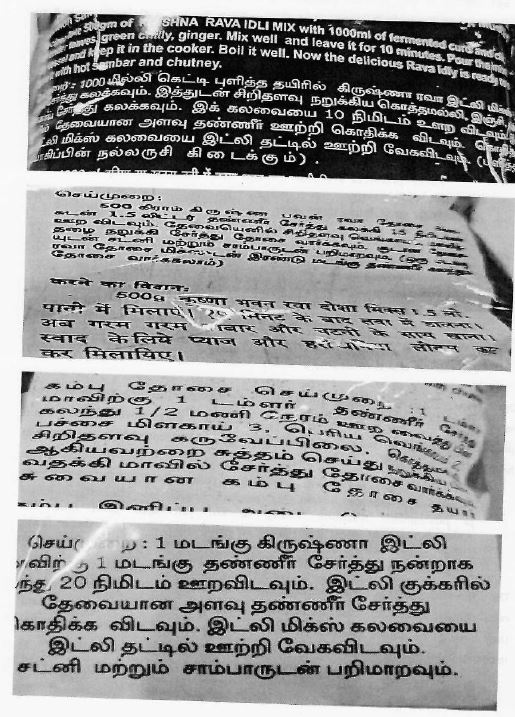 500gm of KRISHNA RAVA IDLI MIX with 1000ml of fermented curd and
leaves, green chilly, ginger. Mix well and leave it for 10 minutes. Pour the
and keep it in the cooker. Boil it well. Now the delicious Rava Idly is ready
with hot sambar and chutney.
: 1000 மில்லி கெட்டி புளித்த தயிரில் கிருஷ்ணா ரவா இட்லி
கலக்கவும். இத்துடன் சிறிதளவு நறுக்கிய கொத்தமல்லி, இஞ்சி
சேர்த்து கலக்கவும். இக் கலவையை 10 நிமிடம் ஊற விடவும்.
தேவையான அளவு தண்ணீர் ஊற்றி கொதிக்க விடவும்.
மிக்ஸ் கலவையை இட்லி தட்டில் ஊற்றி வேகவிடவும்.
நல்லருசி கிடைக்கும்) .
செய்முறை:
500 கிராம் கிருஷ்ண பவன் ரவா தோசை
உடன் 1.5 லிட்டர் தண்ணீர் சேர்த்து கலக்கி 15
ஊற விடவும். தேவையெனில் சிறிதளவு
தழை நறுக்கி சேர்த்து தோசை வார்க்கவும்.
சட்னி மற்றும் சாம்பாருடன் பரிமாறவும்.
ரவா தோசை இரண்டு மடங்கு தண்ணீர்
தோசை வார்க்கலாம்)
करने का विधान:
500g कृष्णा भवन रवा दोशा मिक्स
पानी में मिलाएं। मिनट के बाद तवा में
अब गरम गरम सांबार और चटनी के साथ खाना।
स्वाद के लिये प्याज और
कर मिलायिए।
கம்பு தோசை செய்முறை :1
மாவிற்கு 1 டம்ளர் தண்ணீர்
கலந்து 1/2 மணி நேரம் ஊற வைத்து
பச்சை மிளகாய் 3. பெரிய 2
சிறிதளவு கருவேப்பிலை.
ஆகியவற்றை சுத்தம் செய்து
வதக்கி மாவில் சேர்த்து தோசை
சுவையான கம்பு தோசை
இனிப்பு
செய்முறை : 1 மடங்கு கிருஷ்ணா இட்லி
1 மடங்கு தண்ணீர் சேர்த்து நன்றாக
20 நிமிடம் ஊறவிடவும். இட்லி குக்கரில்
தேவையான அளவு தண்ணீர் சேர்த்து
கொதிக்க விடவும். இட்லி மிக்ஸ் கலவையை
இட்லி தட்டில் ஊற்றி வேகவிடவும்.
சட்னி மற்றும் சாம்பாருடன் பரிமாறவும்.